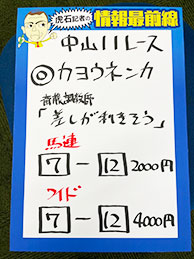 虎石記者の
情報最前線
中山11レース
◎カヨウネンカ
斎藤誠調教師
「差しが利きそう」
馬連
7-12 2000円
ワイド
7-12 4000円